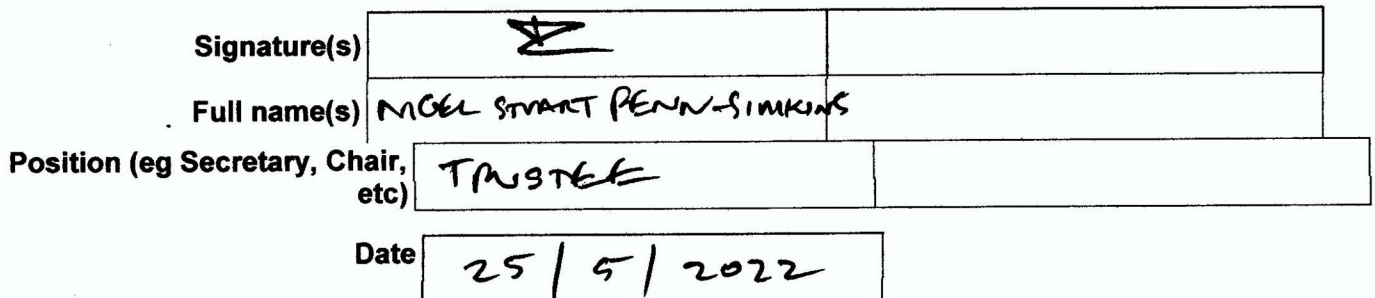 Signature(s)
Full name(s) NIGEL STUART PENN-SIMKINS
Position (eg Secretary, Chair, etc) TRUSTEE
Date 25/5/2022